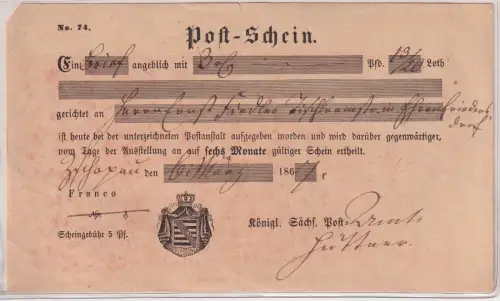 No. 74.
Post-Schein.
Ein Brief angeblich mit Pfd. 13/20 Loth
gerichtet an Herrn Ernst Fiedler Tischlermstr. in Ehrenfrieders
dorf
ist heute bei der unterzeichneten Postanstalt aufgegeben worden und wird darüber gegenwärtiger,
vom Tage der Ausstellung an auf sechs Monate gültiger Schein ertheilt.
Zschopau den 6 März 1867.
Franco
Scheingebühr 5 Pf.
Königl. Sächs. Post Amt
Hüttner.